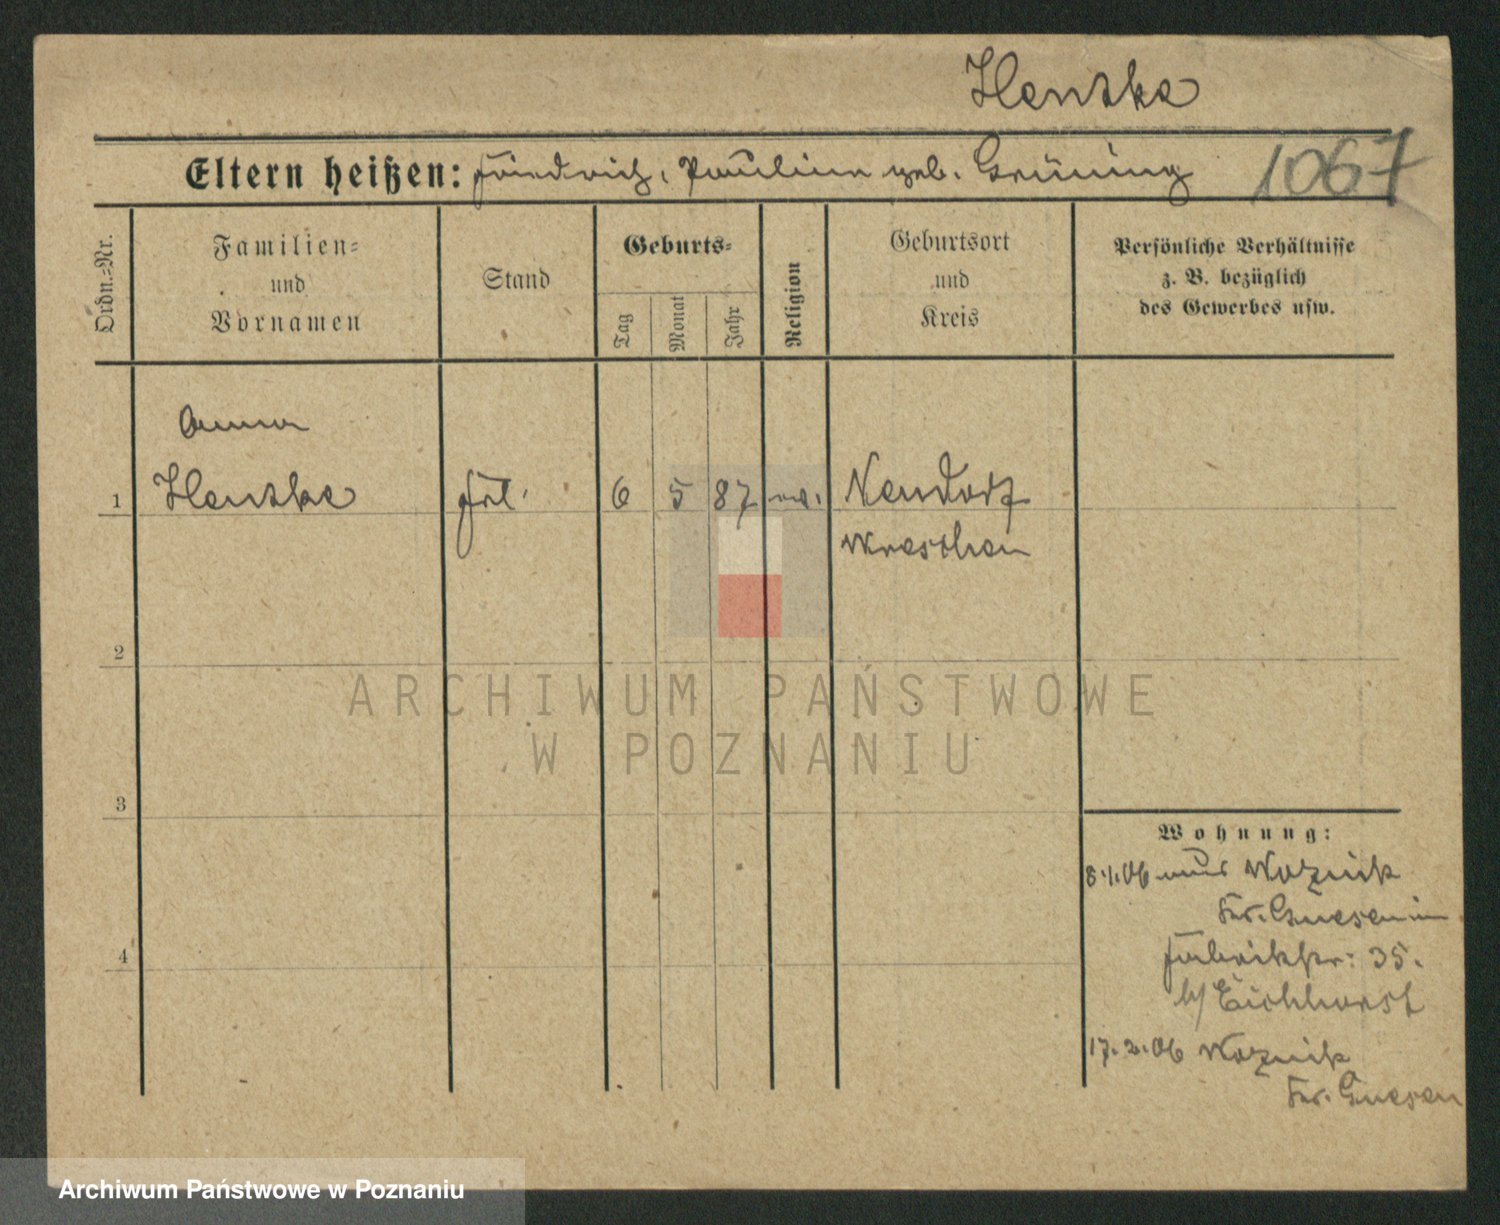 Hentke
Eltern heißen: Friedrich, Pauline geb. Grüning 1067
Ordn.=Nr.
Familien=
und
Vornamen
Stand
Geburts=
Tag
Monat
Jahr
Religion
Geburtsort
und
Kreis
Persönliche Verhältnisse
z. B. bezüglich
des Gewerbes usw.
Anna
1 Hentke Frl. 6 5 87 ev. Neudorf
Wreschen
2
3
4
Wohnung:
8.1.06 aus Woznik
Kr. Gnesen in
Fabrikstr. 35.
b/ Eichhorst
17.2.06 Woznik
Kr. Gnesen
ARCHIWUM PAŃSTWOWE
W POZNANIU
Archiwum Państwowe w Poznaniu